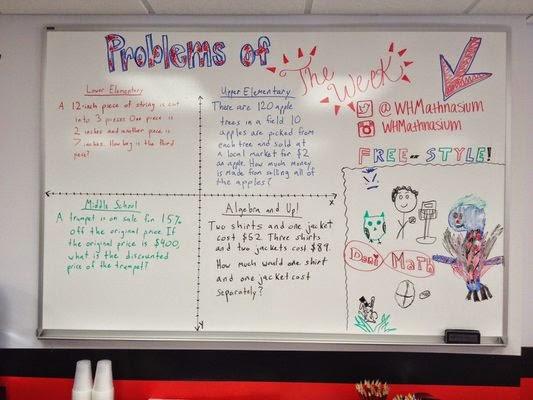 Problems of
The Week
@ WHMathnasium
WHMathnasium
FREE-STYLE!
Lower Elementary
A 12-inch piece of string is cut
into 3 pieces. One piece is
2 inches and another piece is
7 inches. How long is the third
piece?
Upper Elementary
There are 120 apple
trees in a field. 10
apples are picked from
each tree and sold at
a local market for $2
an apple. How much money
is made from selling all of
the apples?
Middle School
A trumpet is on sale for 15%
off the original price. If
the original price is $400,
what is the discounted
price of the trumpet?
Algebra and Up!
Two shirts and one jacket
cost $52. Three shirts
and two jackets cost $89.
How much would one shirt
and one jacket cost
separately?
x
y
Math